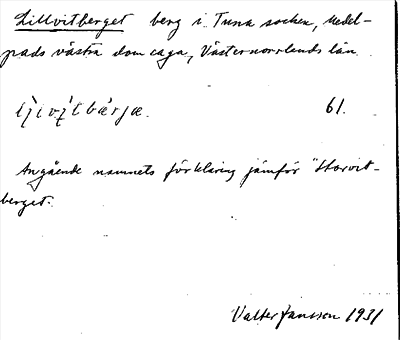 Lillvitberget berg i Tuna socken, Medel-
pads västra domsaga, Västernorrlands län.
61.
Angående namnets förklaring jämför "Storvit-
berget.
Valter Jansson 1931